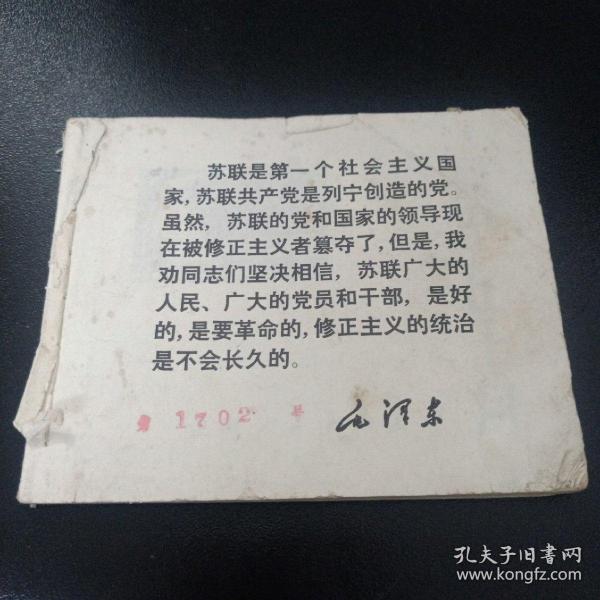 苏联是第一个社会主义国
家,苏联共产党是列宁创造的党。
虽然,苏联的党和国家的领导现
在被修正主义者篡夺了,但是,我
劝同志们坚决相信,苏联广大的
人民、广大的党员和干部,是好
的,是要革命的,修正主义的统治
是不会长久的。
第 1702 号
毛泽东
孔夫子旧书网
www.kongfz.com